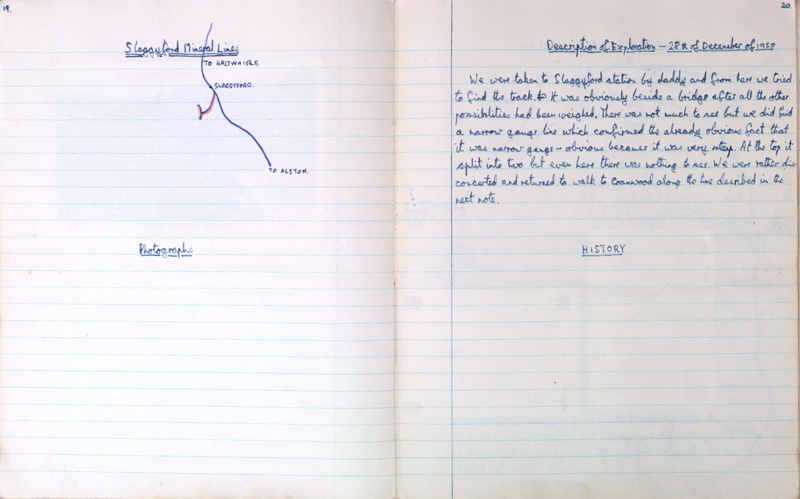 19.
Slaggyford Mineral Lines
TO HALTWHISTLE
SLAGGYFORD.
TO ALSTON.
Photographs
20.
Description of Exploration - 28th of December of 1958
We were taken to Slaggyford station by daddy and from here we tried
to find the track. It was obviously beside a bridge after all the other
possibilities had been weighed. There was not much to see but we did find
a narrow gauge line which confirmed the already obvious fact that
it was narrow gauge - obvious because it was very steep. At the top it
split into two but even here there was nothing to see. We were rather dis
concerted and returned to walk to Coanwood along the line described in the
next note.
HISTORY